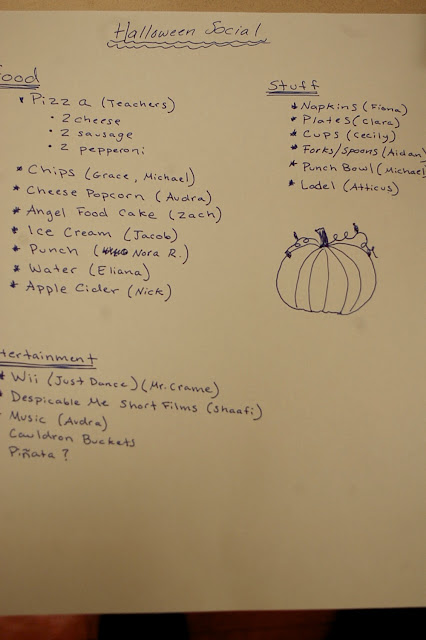 Halloween Social
Food
Pizza (Teachers)
• 2 cheese
• 2 sausage
• 2 pepperoni
* Chips (Grace, Michael)
* Cheese Popcorn (Audra)
* Angel Food Cake (Zach)
* Ice Cream (Jacob)
* Punch (Nora R.)
* Water (Eliana)
* Apple Cider (Nick)
Stuff
* Napkins (Fiana)
* Plates (Clara)
* Cups (Cecily)
* Forks/Spoons (Aidan)
* Punch Bowl (Michael
* Ladel (Atticus)
tertainment
* Wii (Just Dance) (Mr. Crame)
* Despicable Me Short Films (Shaafi)
Music (Audra)
Cauldron Buckets
Piñata?